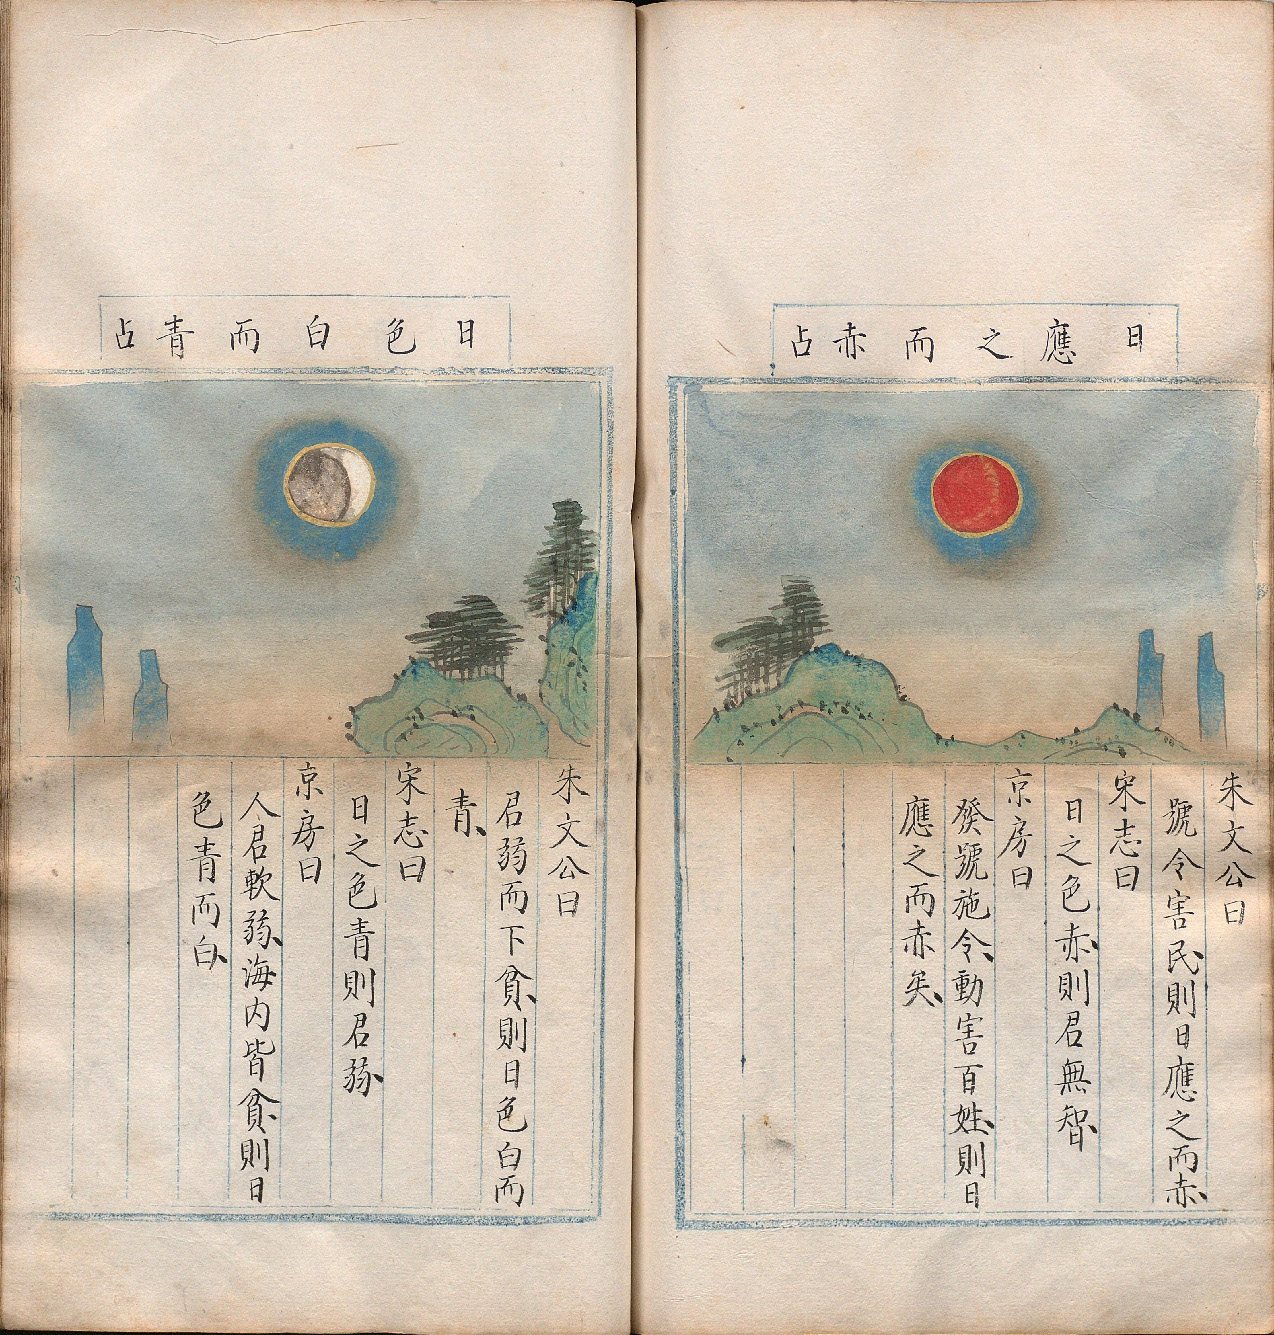 日應之而赤占
朱文公曰
號令害民、則日應之而赤、
宋志曰
日之色赤、則君無智、
京房曰
發號施令、動害百姓、則日
應之而赤矣、
日色白而青占
朱文公曰
君弱而下貧、則日色白而
青、
宋志曰
日之色青則君弱、
京房曰
人君軟弱、海内皆貧、則日
色青而白、